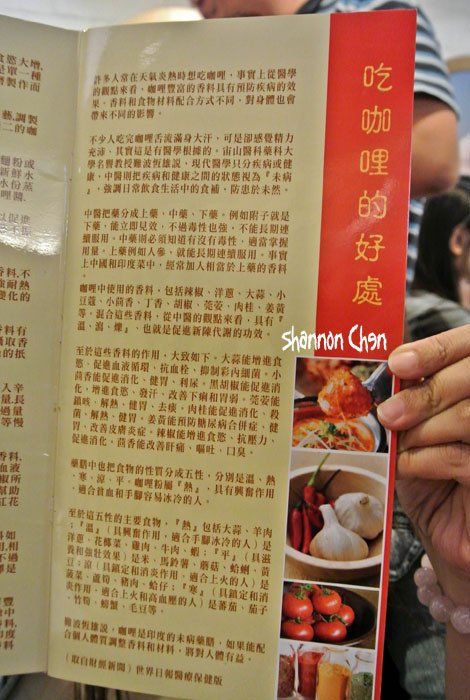 食慾大增,
是單一種
磨製作而
藝,調製
二的咖
麵粉或
新鮮水
水份蒸
哩醬,
以促進
香料,不
強耐熱
變化的
香料有
攝取香
的抵
入辛
過量
等慢
香料,
血液
幫助
紅花
吃咖哩的好處
許多人常在天氣炎熱時想吃咖哩,事實上從醫學
的觀點來看,咖哩豐富的香料具有預防疾病的效
果。香料和食物材料配合方式不同,對身體也會
帶來不同的影響。
不少人吃完咖哩舌流滿身大汗,可是卻感覺精力
充沛,其實這是有醫學根據的。富山醫科藥科大
學名譽教授難波恆雄說,現代醫學只分疾病或健
康,中醫則把疾病和健康之間的狀態視為『未病
』,強調日常飲食生活中的食補,防患於未然。
中醫把藥分成上藥、中藥、下藥。例如附子就是
下藥,能立即見效,不過毒性也強,不能長期連
續服用。中藥則必須知道有沒有毒性,適當掌握
用量。上藥例如人參,就能長期連續服用。事實
上中國和印度菜中,經常加入相當於上藥的香料
咖哩中使用的香料,包括辣椒、洋蔥、大蒜、小
豆蔻、小茴香、丁香、胡椒、莞荽、肉桂、姜黃
等。混合這些香料,從中醫的觀點來看,具有『
溫、瀉、燥』,也就是促進新陳代謝的功效。
至於這些香料的作用,大致如下。大蒜能增進食
慾、促進血液循環、抗血栓、抑制彩肉細菌。小
茴香能促進消化、健胃、利尿。黑胡椒能促進消
化、增進食慾、發汗、改善下痢和胃弱。莞荽能
鎮咳、解熱、健胃、去痰。肉桂能促進消化、殺
菌、解熱、健胃。姜黃能預防糖尿病合併症、健
胃、改善皮膚炎症。辣椒能增進食慾、抗壓力、
促進消化。茴香能改善肝痛、嘔吐、口臭。
藥膳中也把食物的性質分成五性,分別是溫、熱
、寒、涼、平。咖哩粉屬『熱』,具有興奮作用
,適合貧血和手腳容易冰冷的人。
至於這五性的主要食物,『熱』包括大蒜、羊肉
;『溫』(具興奮作用,適合手腳冰冷的人)是
洋蔥、花椰菜、雞肉、牛肉、蝦;『平』(具滋
養和強壯效果)是米、馬鈴薯、蘑菇、蛤蜊、黃
豆;涼(具鎮定和消炎作用,適合上火的人)是
菠菜、蘆筍、豬肉、蛤仔;『寒』(具鎮定和消
炎作用,適合上火和高血壓的人)是蕃茄、茄子
、竹筍、螃蟹、毛豆等。
難波恆雄說,咖哩是印度的未病藥膳,如果能配
合個人體質調整香料和材料,將對人體有益。
(取自財經新聞)世界日報醫療保健版
shannon Chen